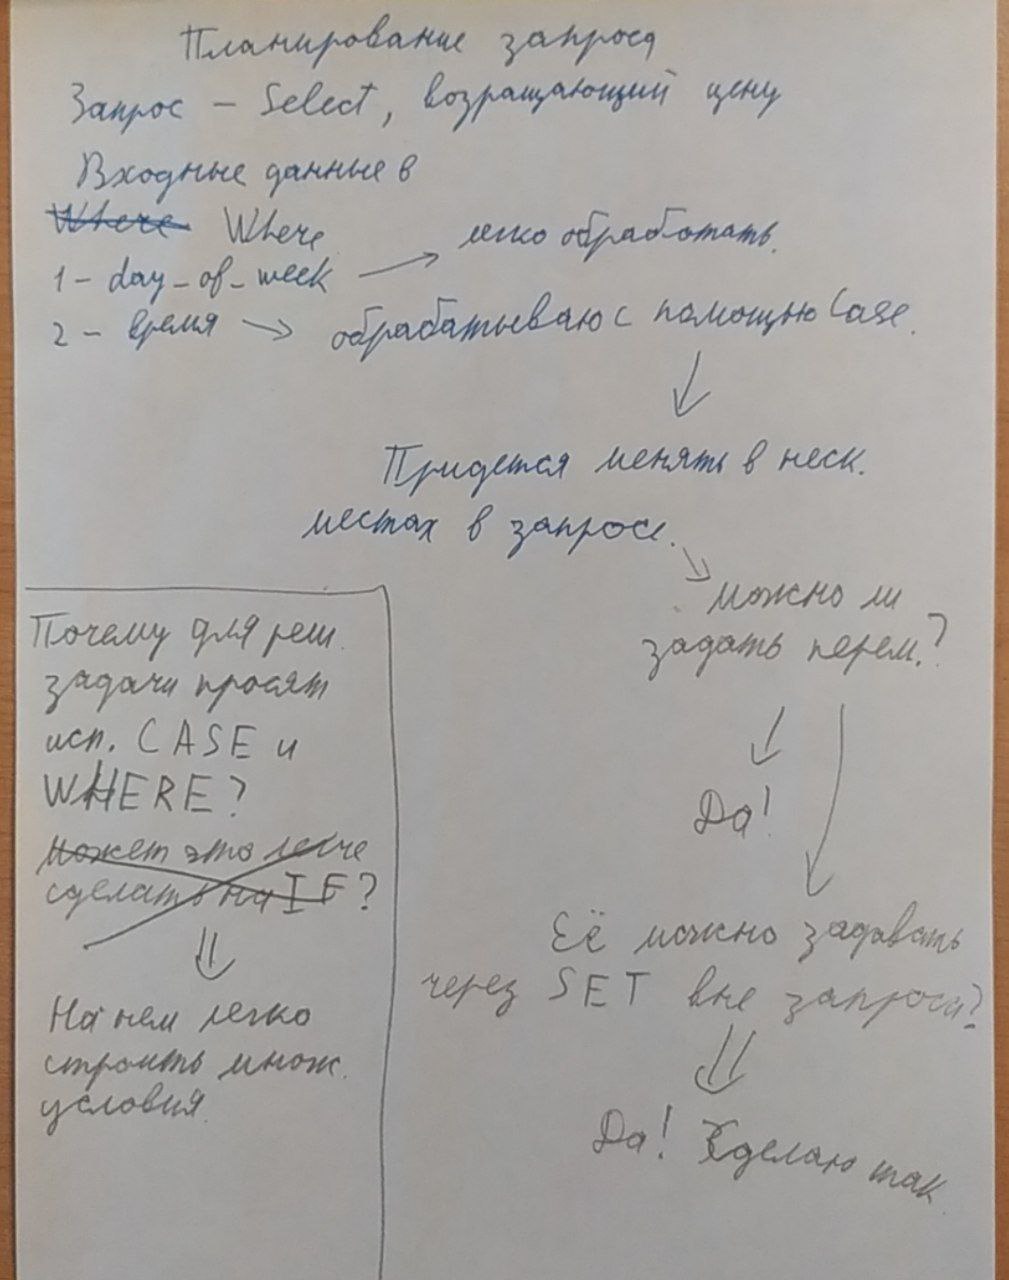 Планирование запроса
Запрос – Select, возращающий цену
Входные данные в
Where Where
1 – day_of_week → легко обработать.
2 – время → обрабатываю с помощью Case.
Придется менять в неск.
местах в запросе.
можно ли
задать перем.?
Да!
Её можно задавать
через SET вне запроса?
Да! Сделаю так
Почему для реш.
задачи просят
исп. CASE и
WHERE?
может это легче
сделать на IF?
На нем легко
строить множ.
условия.